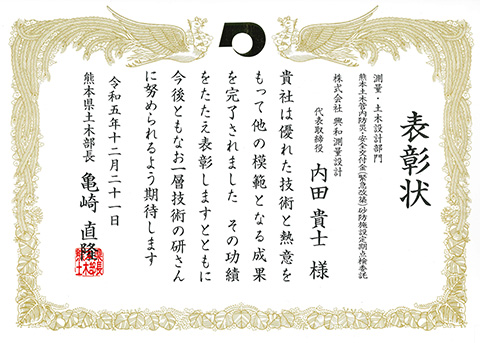 表彰状
測量・土木設計部門
熊本土木管内防災・安全交付金(緊急改築)砂防施設定期点検委託
株式会社 興和測量設計
代表取締役 内田 貴士 様
貴社は優れた技術と熱意を
もって他の模範となる成果
を完了されました その功績
をたたえ表彰しますとともに
今後ともなお一層技術の研さん
に努められるよう期待します
令和五年十二月二十一日
熊本県土木部長 亀崎 直隆